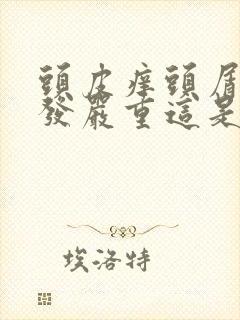 頭皮痒頭屑
發嚴重這是
埃洛特